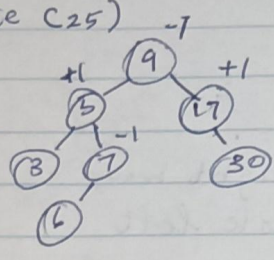 e (25)
-1
9
+1
+1
5
17
-1
3
7
30
6